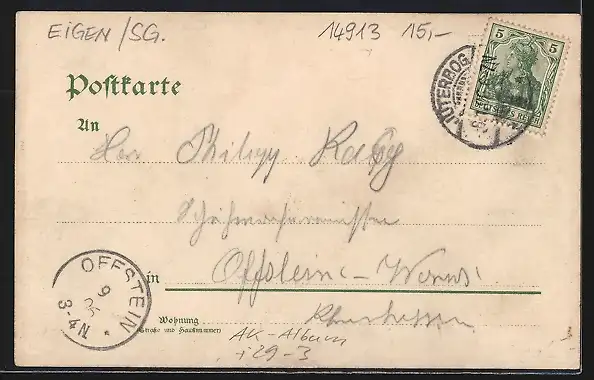 EIGEN/SG.
14913 15,-
Postkarte
5 5
DEUTSCHES REICH
JÜTERBOG
An
Herr Philipp
Offstein - Worms
in
Rheinhessen
OFFSTEIN
9
3-4N
Wohnung
(Straße und Hausnummer)
AK-Album
+29-3